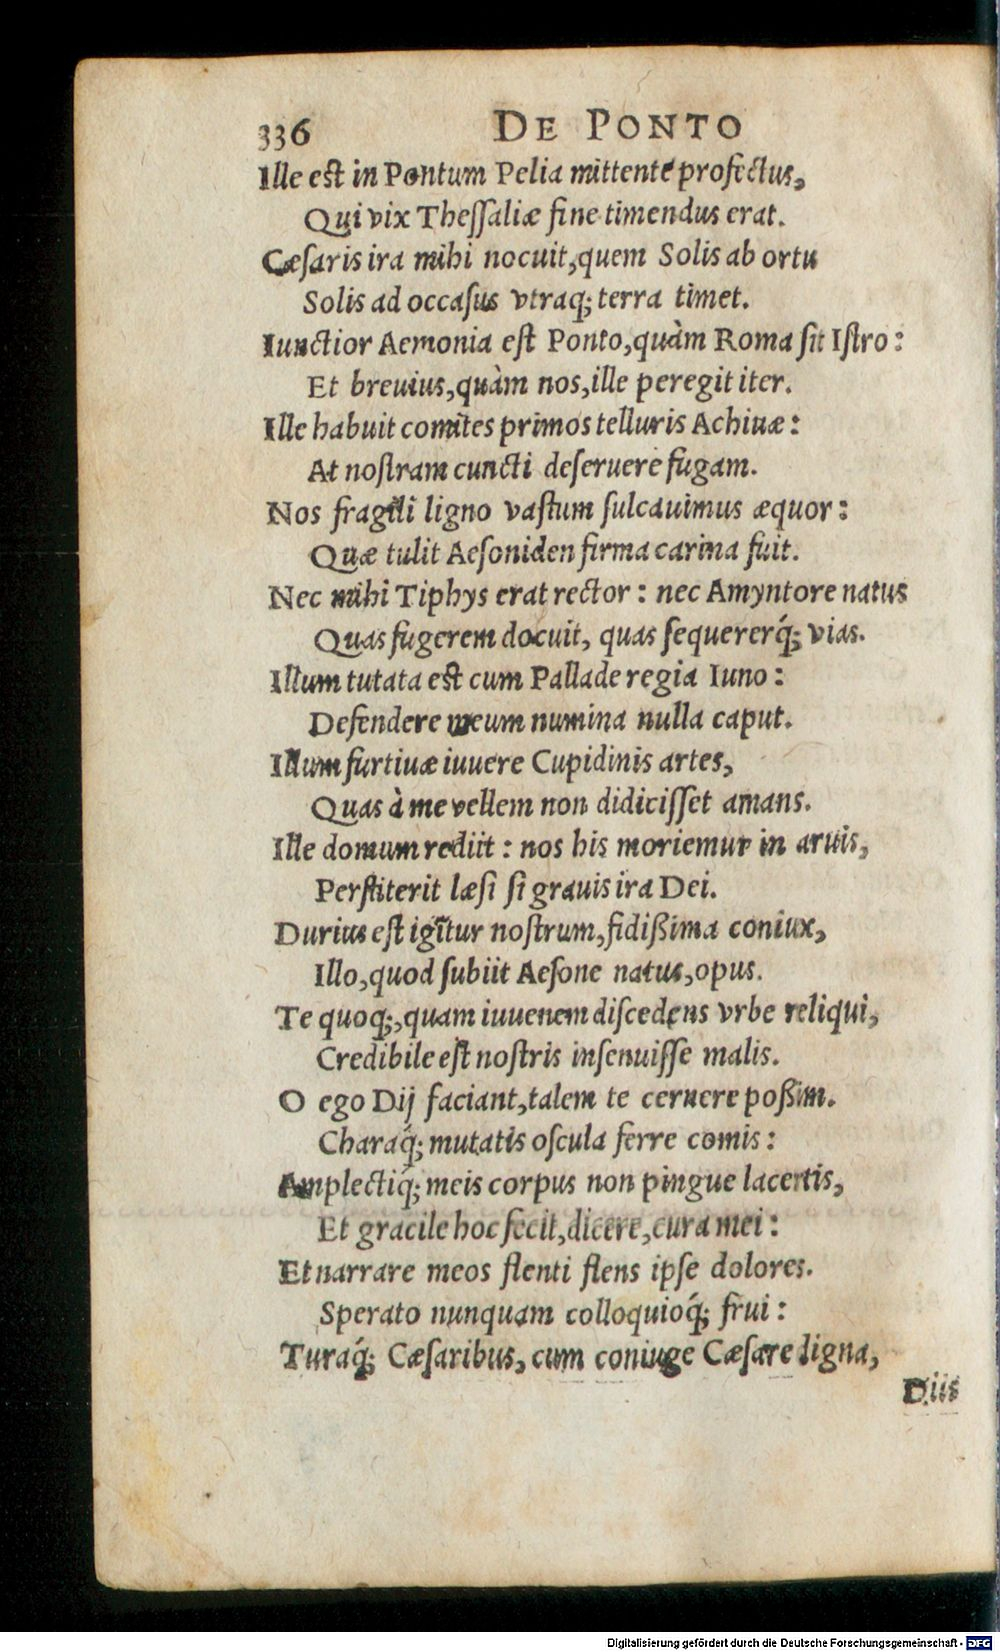 336 DE PONTO
Ille est in Pontum Pelia mittente profectus,
Qui vix Thessaliæ fine timendus erat.
Cæsaris ira mihi nocuit, quem Solis ab ortu
Solis ad occasus vtraq; terra timet.
Iunctior Aemonia est Ponto, quàm Roma sit Istro:
Et breuius, quàm nos, ille peregit iter.
Ille habuit comites primos telluris Achiuæ:
At nostram cuncti deseruere fugam.
Nos fragili ligno vastum sulcauimus æquor:
Quæ tulit Aesoniden firma carina fuit.
Nec mihi Tiphys erat rector: nec Amyntore natus
Quas fugerem docuit, quas sequererq́; vias.
Illum tutata est cum Pallade regia Iuno:
Defendere meum numina nulla caput.
Illum furtiuæ iuuere Cupidinis artes,
Quas à me vellem non didicisset amans.
Ille domum rediit: nos his moriemur in aruis,
Perstiterit læsi si grauis ira Dei.
Durius est igitur nostrum, fidißima coniux,
Illo, quod subiit Aesone natus, opus.
Te quoq;, quam iuuenem discedens vrbe reliqui,
Credibile est nostris insenuisse malis.
O ego Dij faciant, talem te cernere poßim.
Charaq́; mutatis oscula ferre comis:
Amplectiq́; meis corpus non pingue lacertis,
Et gracile hoc fecit, dicere, cura mei:
Et narrare meos flenti flens ipse dolores.
Sperato nunquam colloquioq́; frui:
Turaq́; Cæsaribus, cum coniuge Cæsare digna,
Diis
Digitalisierung gefördert durch die Deutsche Forschungsgemeinschaft - DFG